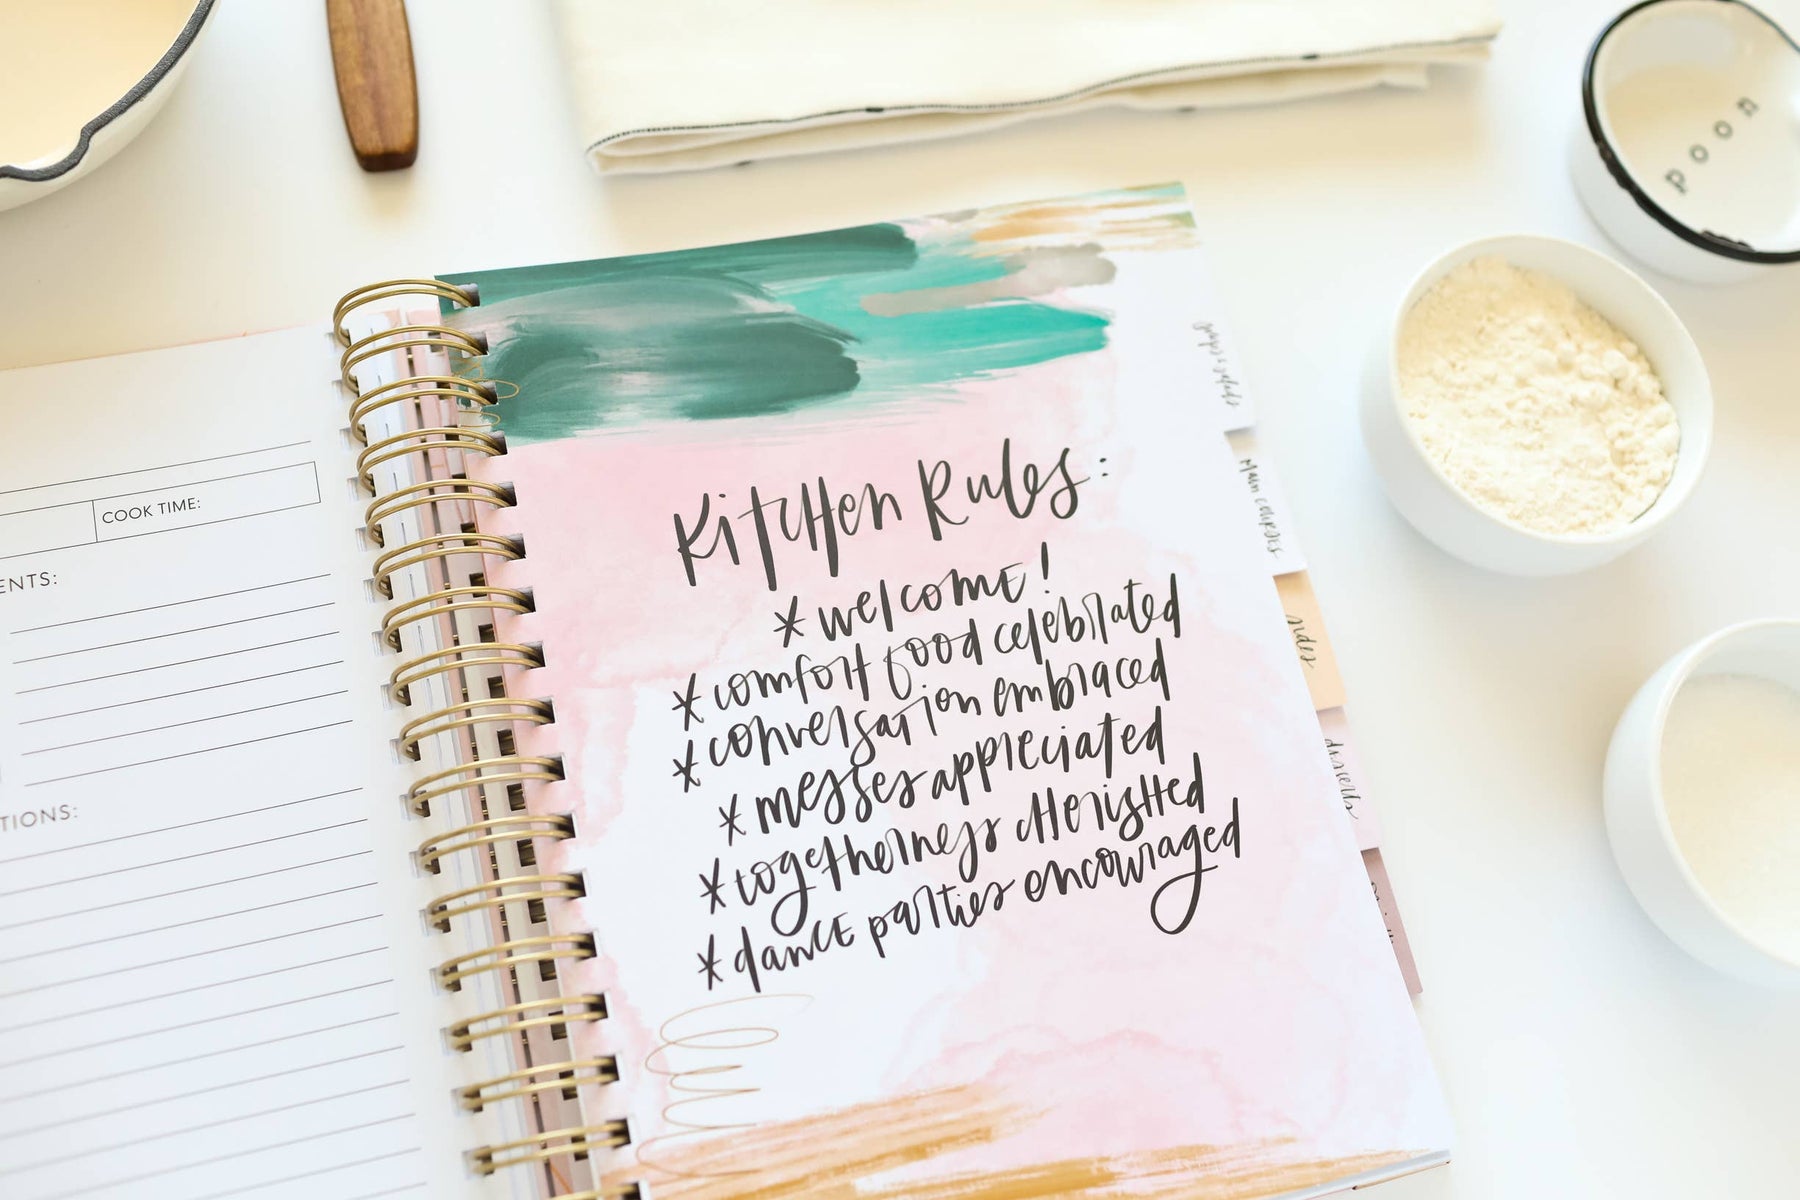 COOK TIME:
ENTS:
TIONS:
Kitchen Rules:
* welcome!
* comfort food celebrated
* conversation embraced
* messes appreciated
* togetherness cherished
* dance parties encouraged
soups & salads
Main Courses
sides
desserts
poon